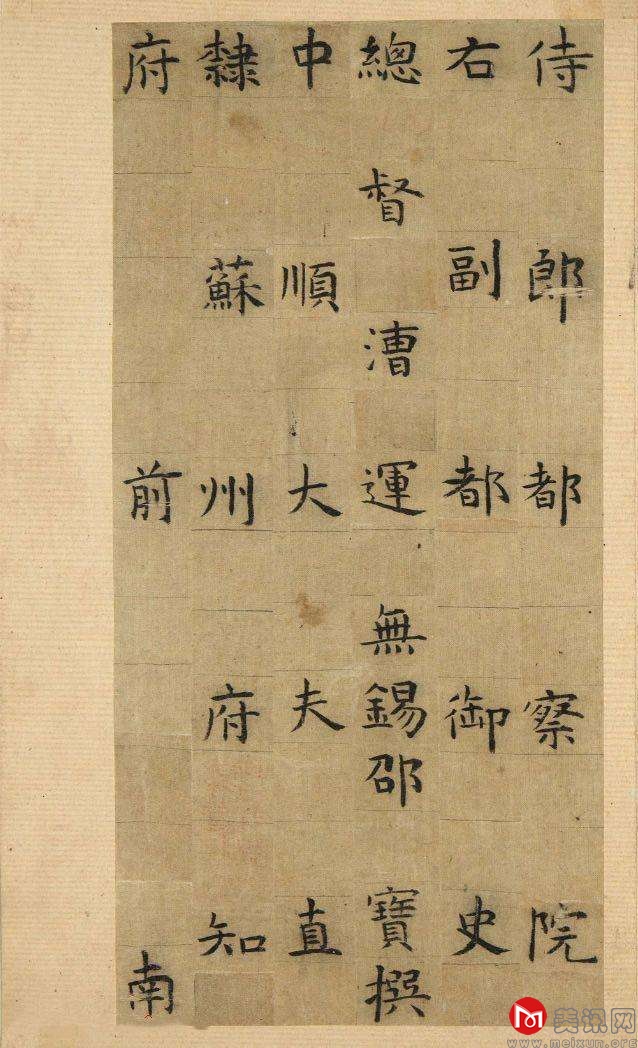 侍郎都察院
右副都御史
總督漕運無錫邵寶撰
中順大夫直
隸蘇州府知
府前南
美讯网
www.meixun.org